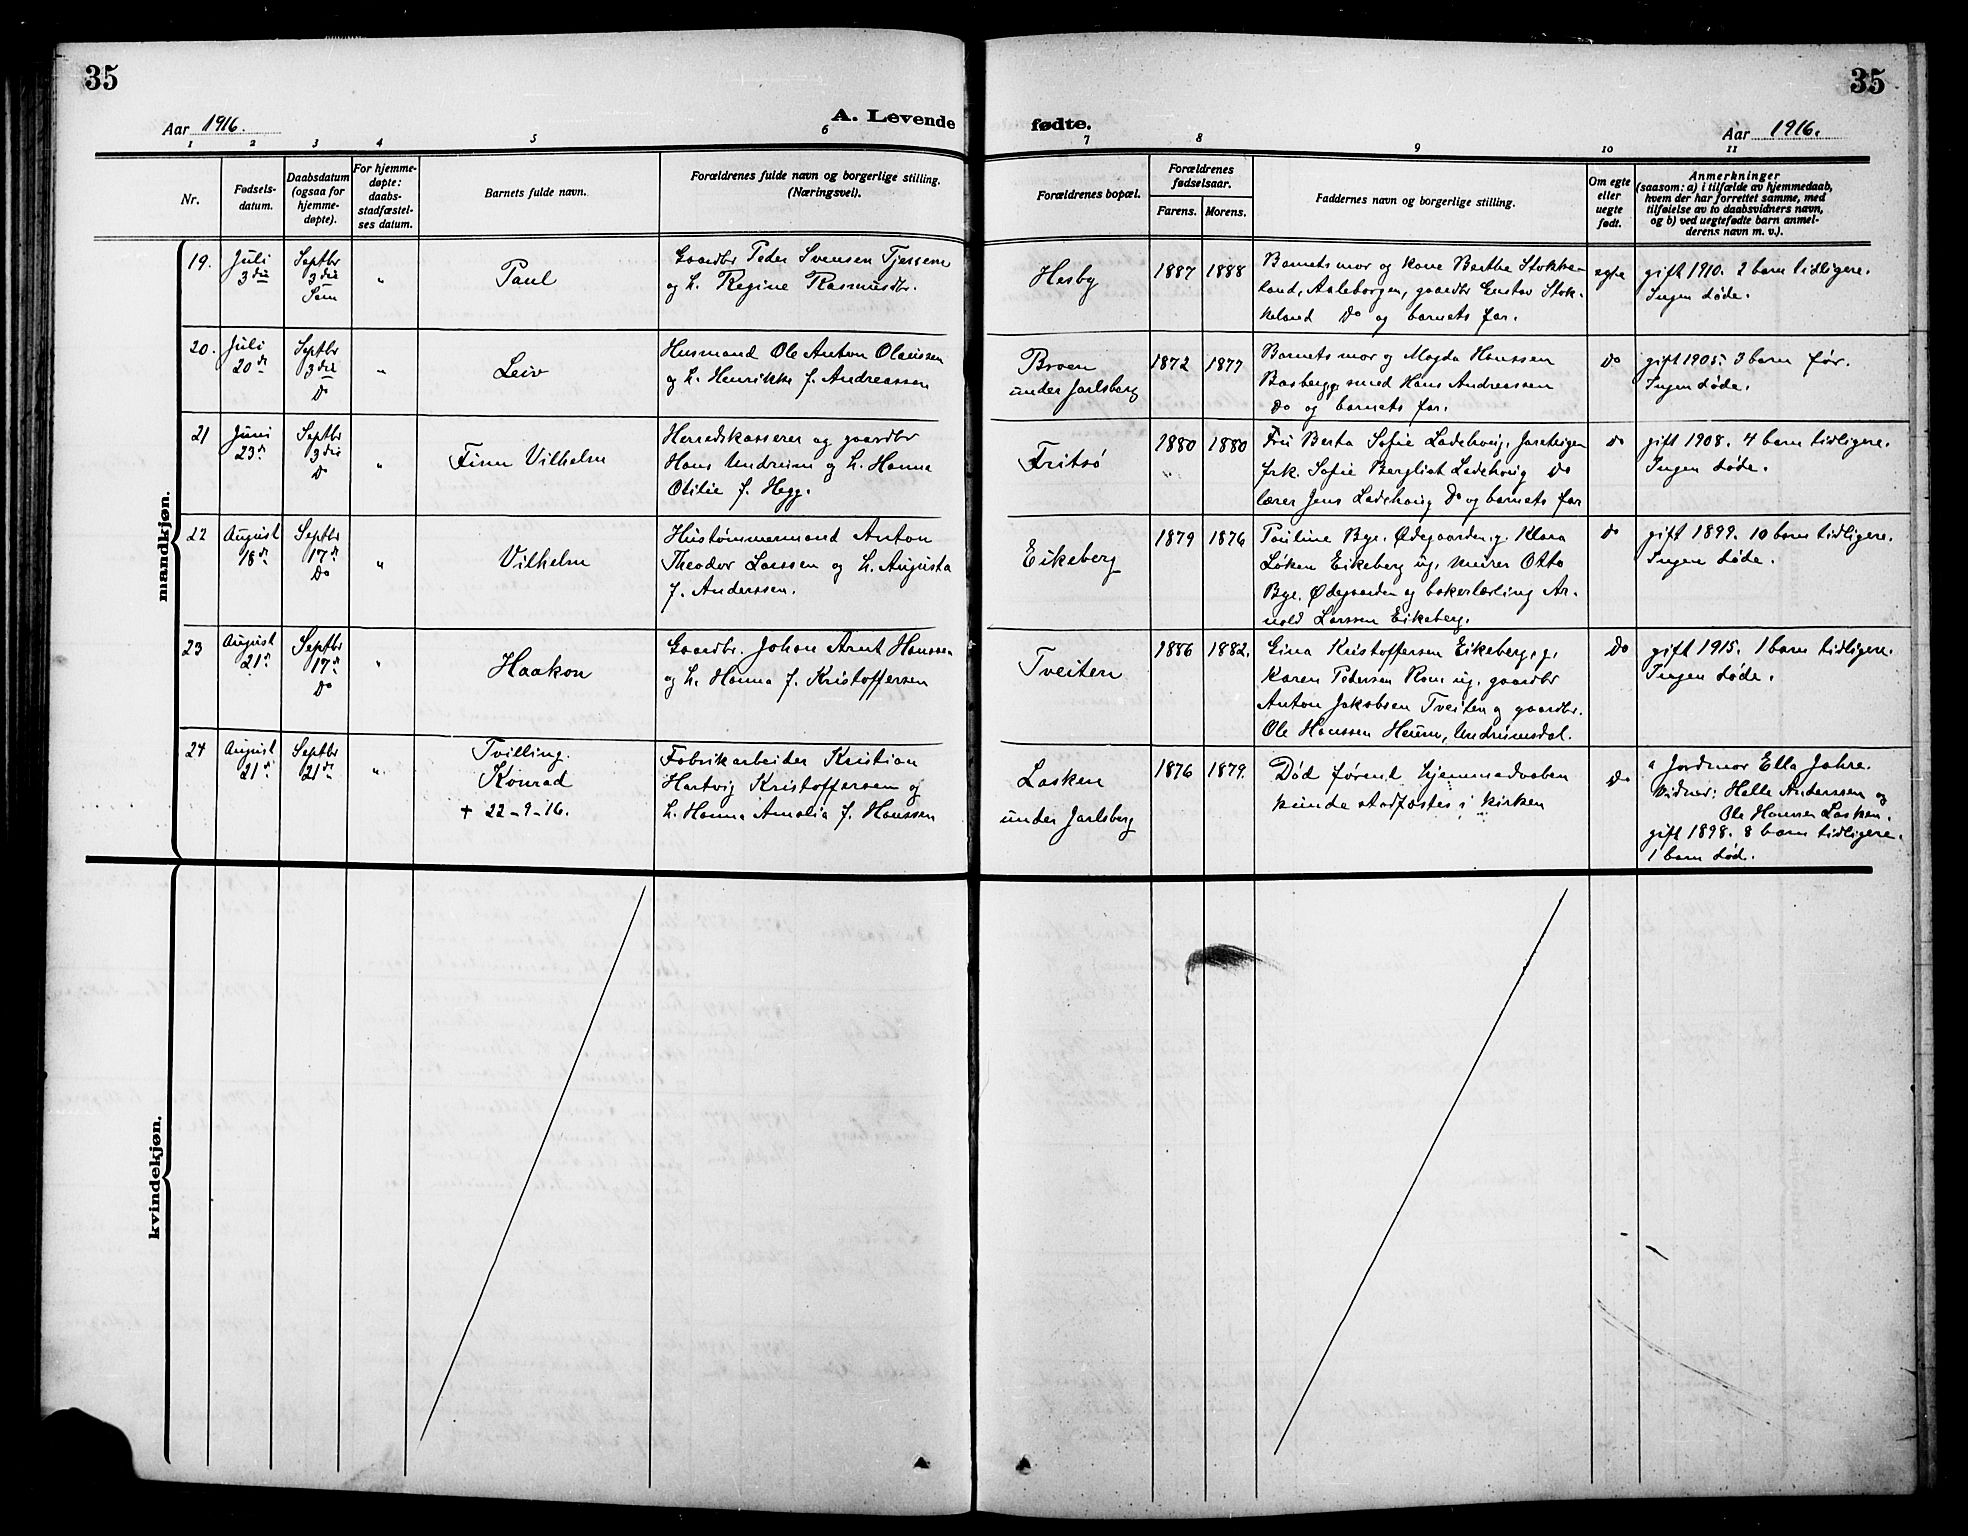 35
35
Aar 1916.
A. Levende
fødte.
Aar 1916.
1 2 3 4 5 6 7 8 9 10 11
Nr.
Fødsels-
datum.
Daabsdatum
(ogsaa for
hjemme-
døpte).
For hjemme-
døpte:
daabs-
stadfæstel-
ses datum.
Barnets fulde navn.
Forældrenes fulde navn og borgerlige stilling.
(Næringsvei).
Forældrenes bopæl.
Forældrenes
fødselsaar.
Farens. Morens.
Faddernes navn og borgerlige stilling.
Om egte
eller
uegte
født.
Anmerkninger
(saasom: a) i tilfælde av hjemmedaab,
hvem der har forrettet samme, med
tilføielse av to daabsvidners navn,
og b) ved uegtefødte barn anmel-
derens navn m. v.).
mandkjøn.
19.
Juli
3die
Septbr
3die
Sem
"
Paul
Gaardbr Peder Svensen Tjersem
og h. Regine Rasmusdtr.
Hesby
1887 1888
Barnets mor og kone Berthe Stokke-
land, Aaleborgen, gaardbr Gustav Stok-
keland Do og barnets far.
egte
gift 1910. 2 barn tidligere.
Ingen døde.
20.
Juli
20de
Septbr
3die
Do
"
Leiv
Husmand Ole Anton Olaussen
og h. Henrikke f. Andreassen
Broen
under Jarlsberg
1872 1877
Barnets mor og Magda Hanssen
Basberg, smed Hans Andreassen
Do og barnets far.
Do
gift 1905. 3 barn før.
Ingen døde.
21
Juni
23de
Septbr
3die
Do
"
Finn Vilhelm
Herredskasserer og gaardbr
Hans Undrum og h. Hanna
Otilie f. Hegg.
Fritsø
1880 1880
Fru Berta Sofie Ladehoug, Jareteigen
frk. Sofie Bergliot Ladehoug Do
lærer Jens Ladehoug Do og barnets far
Do
gift 1908. 4 barn tidligere.
Ingen døde.
22
August
18de
Septbr
17de
Do
"
Vilhelm
Hustømmermand Anton
Theodor Larssen og h. Augusta
f. Anderssen.
Eikeberg
1879 1876
Pauline Bye, Ødegaarden, g. Klara
Løken Eikeberg ug, murer Otto
Bye, Ødegaarden og bakerlærling Ar-
nold Larssen Eikeberg.
Do
gift 1899. 10 barn tidligere.
Ingen døde.
23
August
21de
Septbr
17de
Do
"
Haakon
Gaardbr. Johan Arnt Hanssen
og h. Hanna f. Kristoffersen
Tveiten
1886 1882.
Gina Kristoffersen Eikeberg, g,
Karen Pedersen Rom ug, gaardbr
Anton Jakobsen Tveiten og gaardbr.
Ole Hanssen Heum, Undrumsdal.
Do
gift 1915. 1 barn tidligere.
Ingen døde.
24
August
21de
Septbr
21de
"
Tvilling.
Konrad
+ 22-9-16.
Fabrikarbeider Kristian
Hartvig Kristoffersen og
h. Hanna Amalia f. Hanssen
Lasken
under Jarlsberg
1876 1879.
Død førend hjemmedaaben
kunde stadfæstes i kirken
Do
a Jordmor Ella Jahre.
Vidner: Helle Anderssen og
Ole Hanssen Lasken.
gift 1898. 8 barn tidligere.
1 barn død.
kvindekjøn.